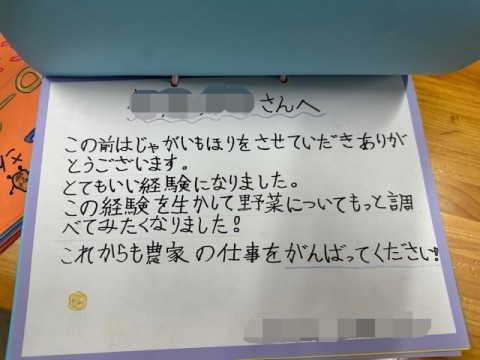 さんへ
この前はじゃがいもほりをさせていだきありが
とうございます。
とてもいい経験になりました。
この経験を生かして野菜についてもっと調
べてみたくなりました!
これからも農家の仕事をがんばってください!